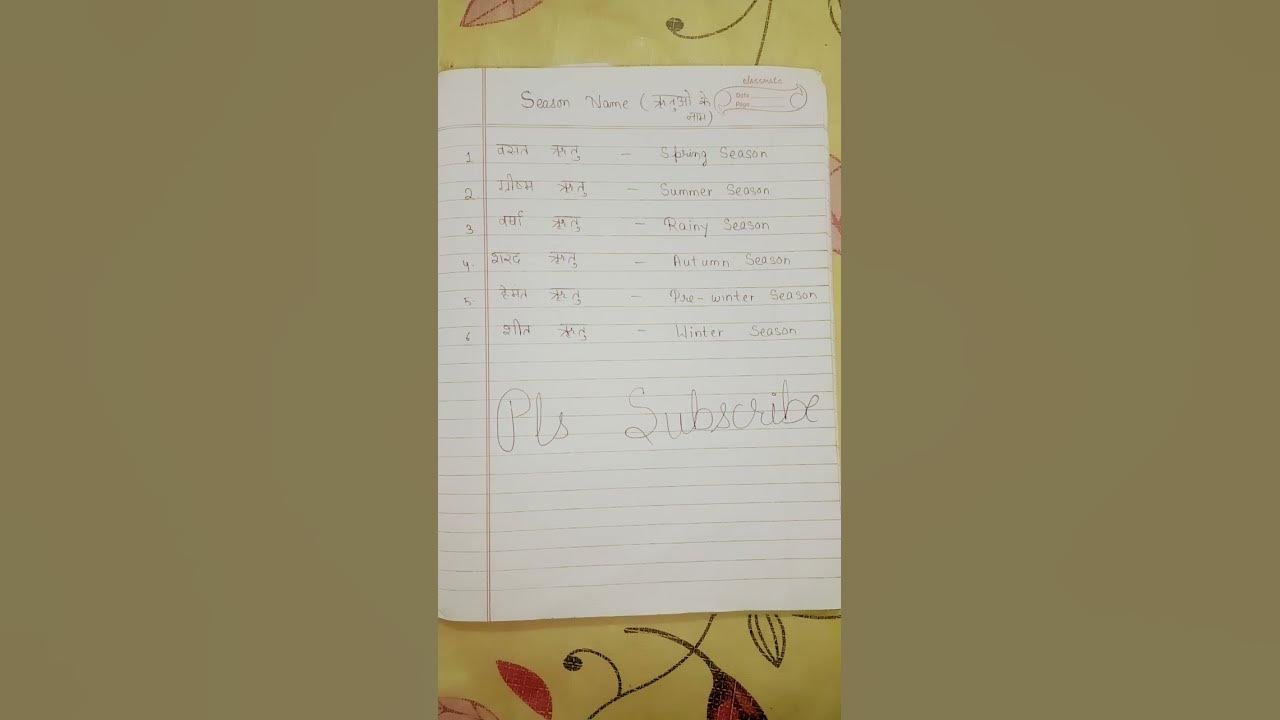 classmate
Date
Page
Season Name (ऋतुओ के
नाम)
1 वसत ऋतु - Spring Season
2. ग्रीष्म ऋतु - Summer Season
3 वर्षा ऋतु - Rainy Season
4. शरद ऋतु - Autumn Season
5. हेमंत ऋतु - Pre-winter Season
6 शीत ऋतु - Winter Season
Pls Subscribe